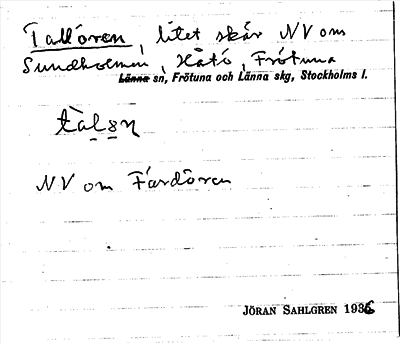 Tallören, litet skär NV om
Sundholmen, Håtö, Frötuna
Länna sn, Frötuna och Länna skg, Stockholms l.
tàlǝṇ
NV om Fårdören
JÖRAN SAHLGREN 1936